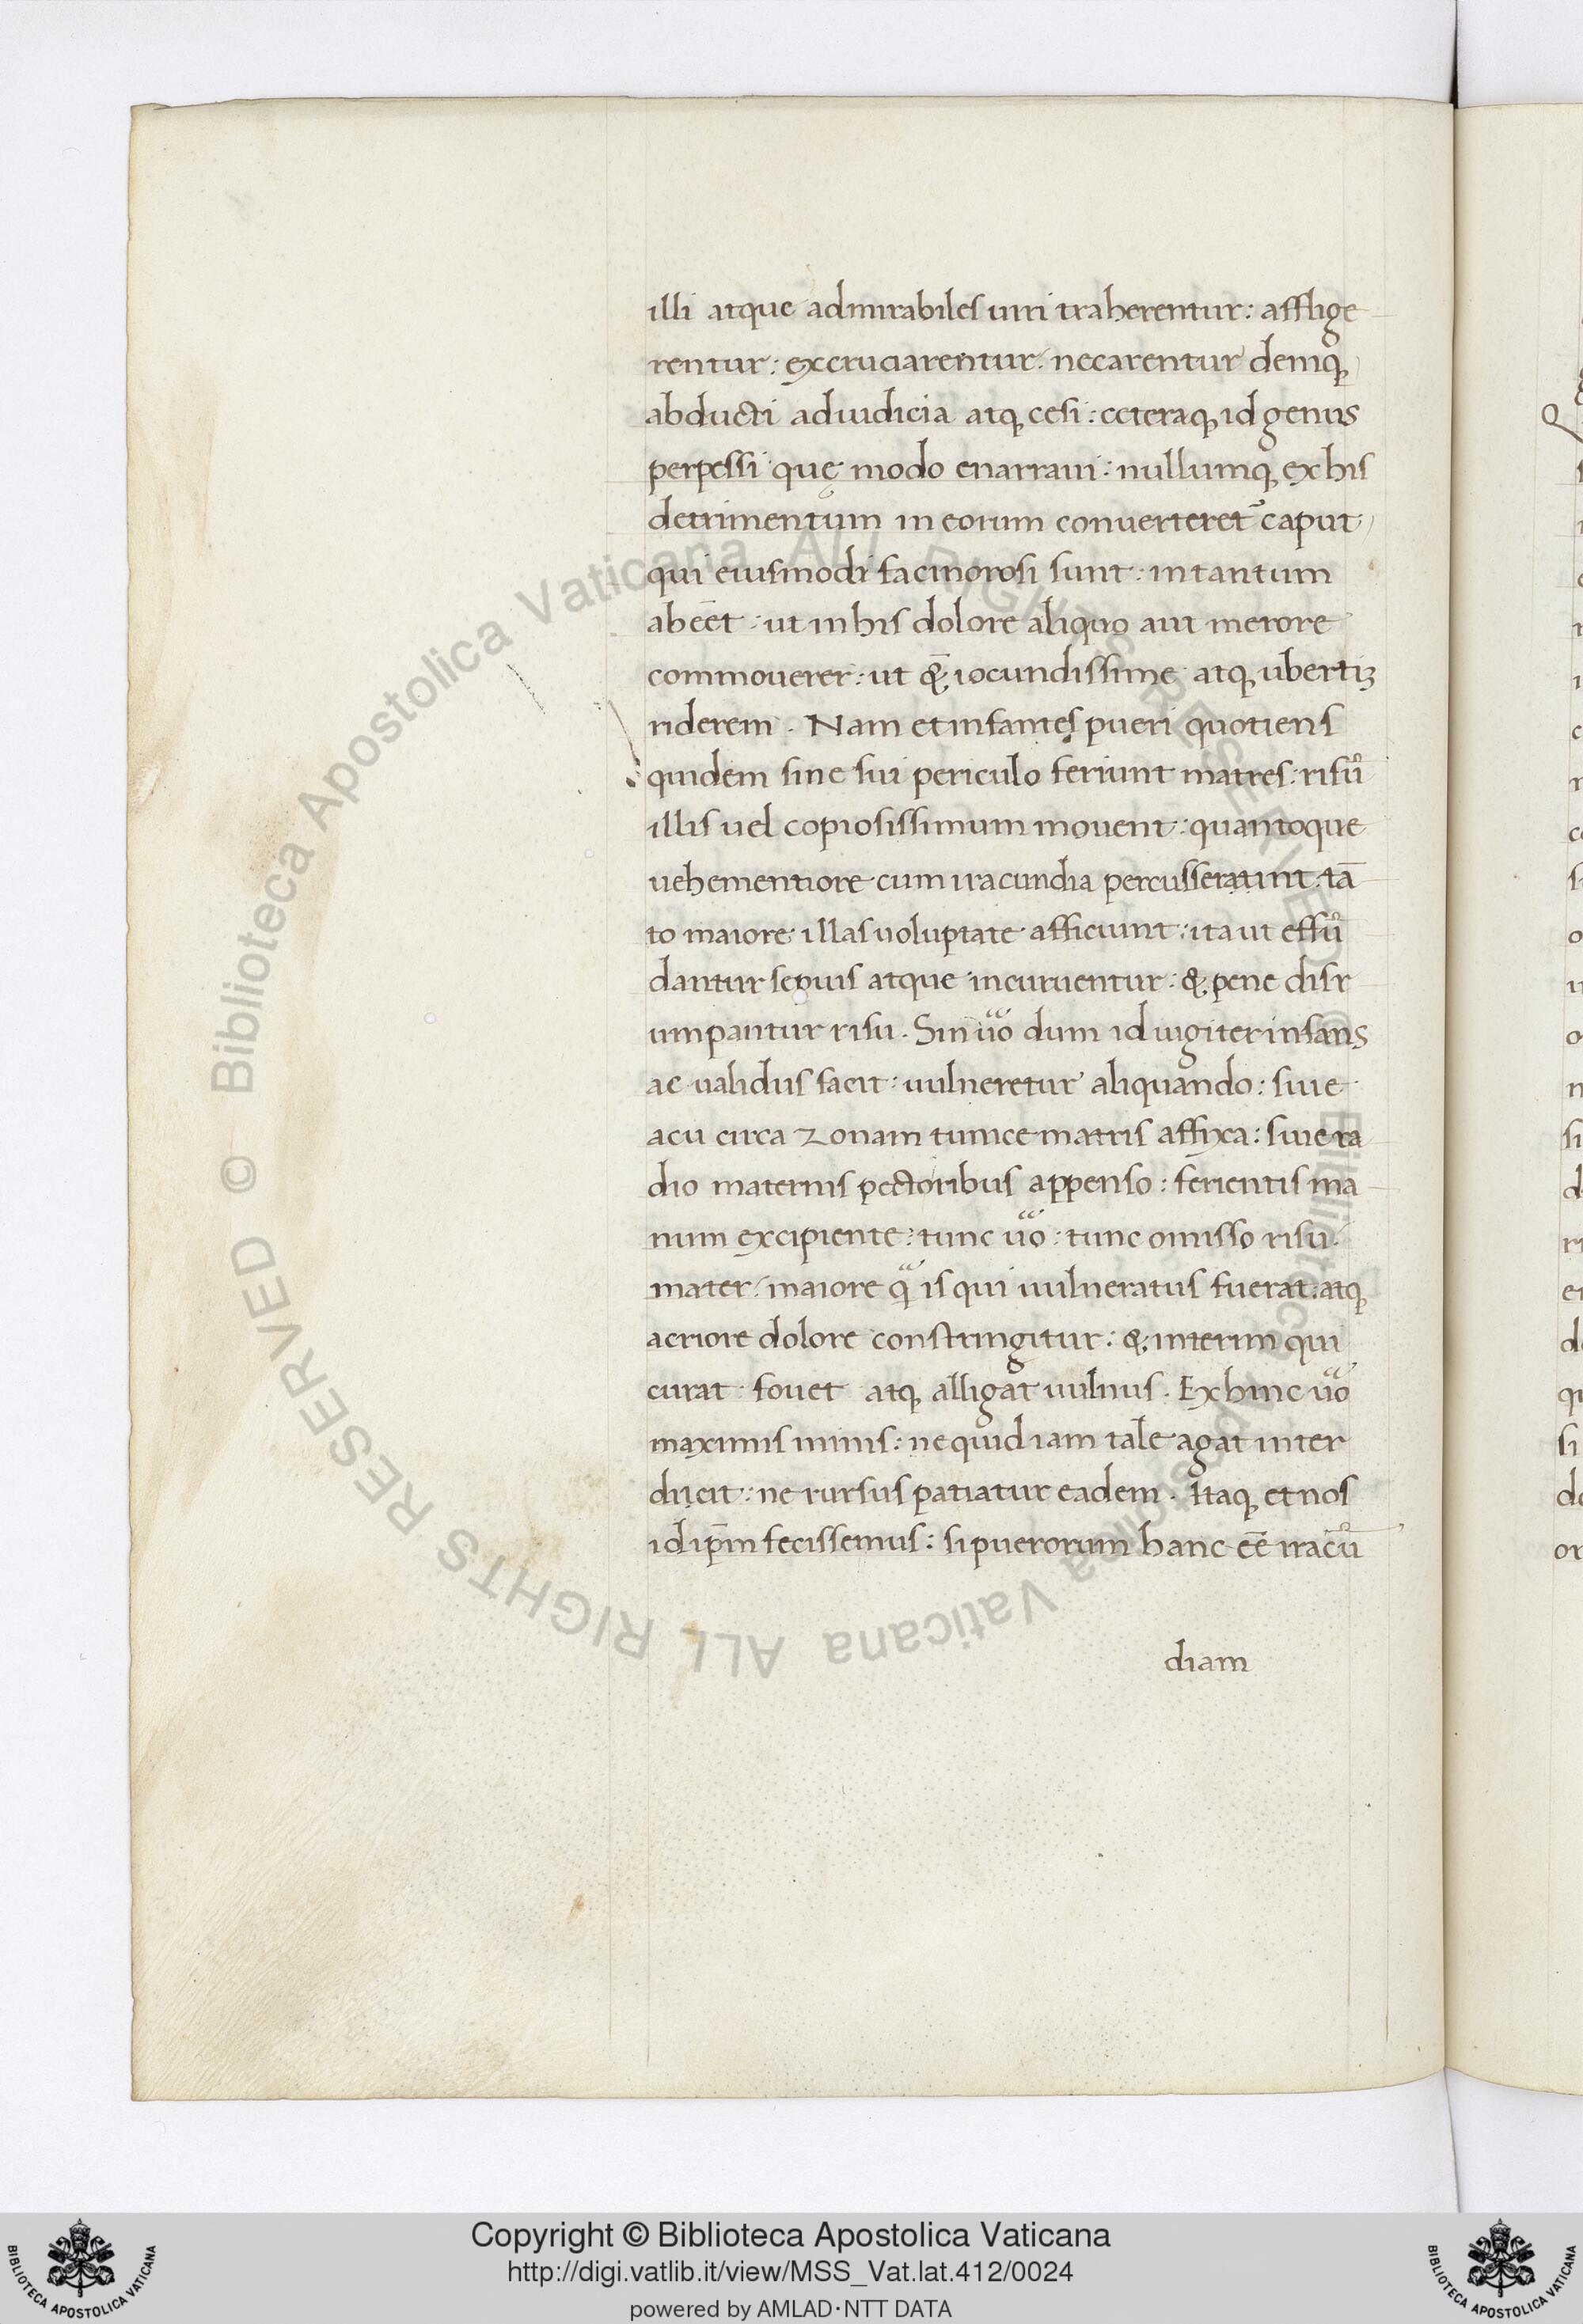 illi atque admirabiles uiri traherentur: afflige
rentur: excruciarentur: necarentur deniqꝫ
abducti ad iudicia atqꝫ cesi: ceteraqꝫ id genus
perpessi quę modo enarraui: nullumqꝫ ex his
detrimentum in eorum conuerteret᷑ caput
qui eiusmodi facinorosi sunt: in tantum
abēēt: ut in his dolore aliquo aut merore
commouerer: ut &̄ iocundissime atqꝫ ubertiꝫ
riderem. Nam et infantes pueri quotiens
quidem sine sui periculo feriunt matres: risū
illis uel copiosissimum mouent: quantoque
uehementiore cum iracundia percusserunt: tā
to maiore illas uoluptate afficiunt: ita ut effū
dantur sepius atque incuruentur: & pene disr
umpantur risu. Sin ūo dum id iugiter infans
ac ualidus facit: uulneretur aliquando: siue
acu circa zonam tunice matris affixa: siue ra
dio maternis pectoribus appenso: ferientis ma
num excipiente: tunc ūo: tunc omisso risu
mater: maiore q̄ is qui uulneratus fuerat: atqꝫ
acriore dolore constringitur: & interim qui
curat fouet atqꝫ alligat uulnus. Ex hinc ūo
maximis minis: ne quid iam tale agat inter
dicit: ne rursus patiatur eadem. Itaqꝫ et nos
id ip̄m fecissemus: si puerorum hanc eē̄ iracū
diam
© Biblioteca Apostolica Vaticana ALL RIGHTS RESERVED © Biblioteca Apostolica Vaticana ALL RIGHTS RESERVED
Copyright © Biblioteca Apostolica Vaticana
http://digi.vatlib.it/view/MSS_Vat.lat.412/0024
powered by AMLAD·NTT DATA
BIBLIOTECA APOSTOLICA VATICANA
BIBLIOTECA APOSTOLICA VATICANA